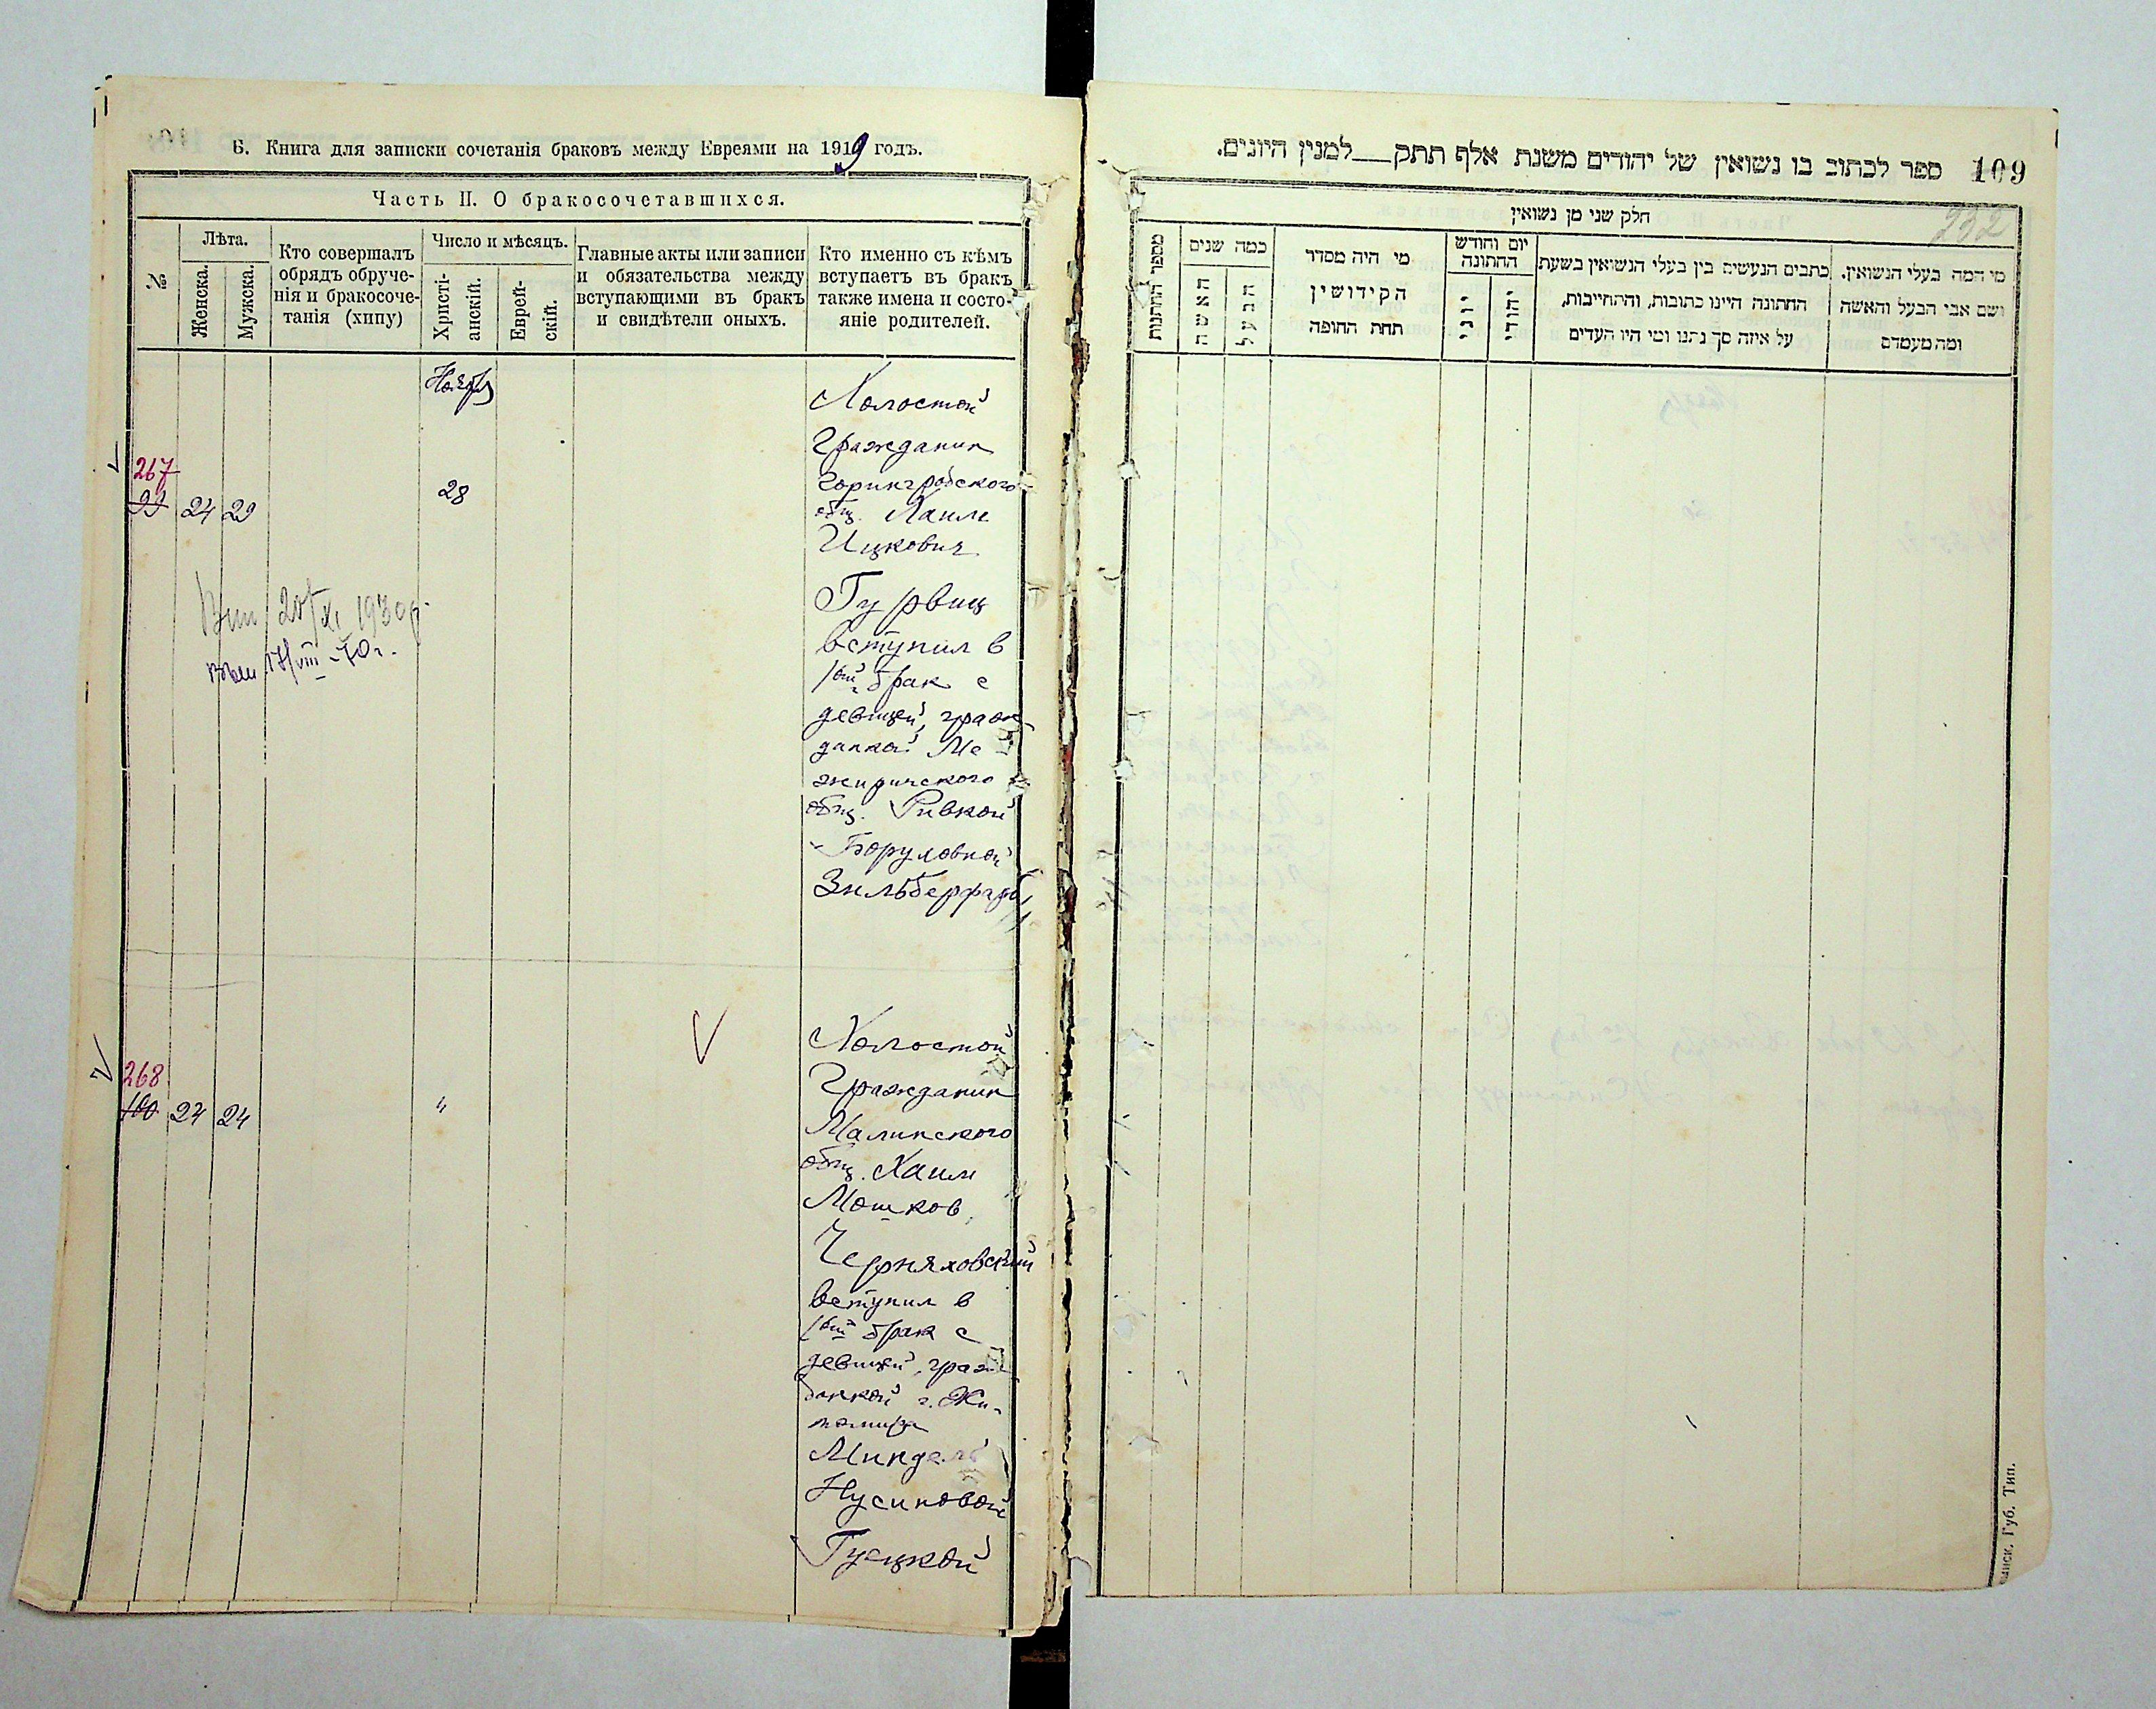 Б. Книга для записки сочетанія браковъ между Евреями на 1919 годъ.
Часть II. О бракосочетавшихся.
№
Лѣта.
Женска.
Мужска.
Кто совершалъ
обрядъ обруче-
нія и бракосоче-
танія (хипу)
Число и мѣсяцъ.
Христі-
анскій.
Еврей-
скій.
Главные акты или записи
и обязательства между
вступающими въ бракъ
и свидѣтели оныхъ.
Кто именно съ кѣмъ
вступаетъ въ бракъ
также имена и состо-
яніе родителей.
Ноябрь
267
99 24 29
28
Холостой
Гражданин
Горингродского
общ. Хаим
Ицкович
Гурвиц
вступил в
1вый брак с
девицей, граж-
данкой Ме
жиричского
общ. Ривкой
Боруховной
Зильберфарб
20/XI 1930 г.
17/VIII-40 г.
268
100 24 24
"
Холостой
Гражданин
Малинского
общ. Хаим
Мошков
Черняховский
вступил в
1вый брак с
девицей, граж
данкой г. Жи-
томира
Миндель
Нусиновой
Гуецкой
109 ספר לכתוב בו נשואין של יהודים משנת אלף תתק___למנין היונים.
232
חלק שני מן נשואין
מספר החתונות
כמה שנים
האשה
הבעל
מי היה מסדר
הקידושין
תחת החופה
יום וחודש
החתונה
יוני
יהודי
כתבים הנעשים בין בעלי הנשואין בשעת
החתונה היינו כתובות, והתחייבות,
על איזה סך נתנו ומי היו העדים
מי המה בעלי הנשואין.
ושם אבי הבעל והאשה
ומה מעמדם
Губ. Тип.